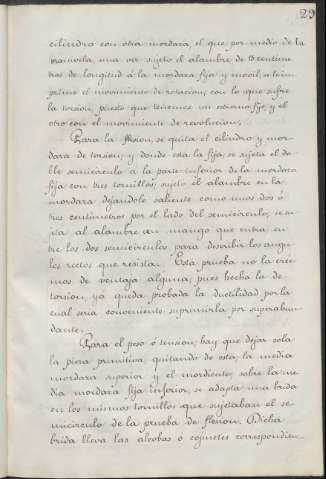 29
cilindro con otra mordaza, el que, por medio de la
manivela, una vez sujeto el alambre de 15 centíme
tros de longitud á la mordaza fija y movil, se im
prime el movimiento de rotacion, con lo que sufre
la torsion, puesto que tenemos un estremo fijo y el
otro con el movimiento de revolucion.
Para la flexion, se quita el cilindro y mor
daza de torsion, y donde está la fija, se sujeta el do
ble semicírculo á la parte inferior de la mordaza
fija con tres tornillos; sujeto el alambre en la
mordaza dejandole saliente como unos dos ó
tres centímetros por el lado del semicírculo, se su
jeta al alambre un mango que entra en
tre los dos semicírculos para describir los angu
los rectos que resistan. Esta prueba no la cree
mos de ventaja alguna, pues hecha la de
torsion, ya queda probada la ductilidad por la
cual seria conveniente suprimirla por superabun
dante.
Para el peso ó tension, hay que dejar sola
la pieza primitiva quitando de esta, la media
mordaza superior y el mordiente, sobre la me
dia mordaza fija inferior, se adapta una brida
en los mismos tornillos que sujetaban el se
micírculo de la prueba de flexion. Dicha
brida lleva las alcobas ó cojinetes correspondien